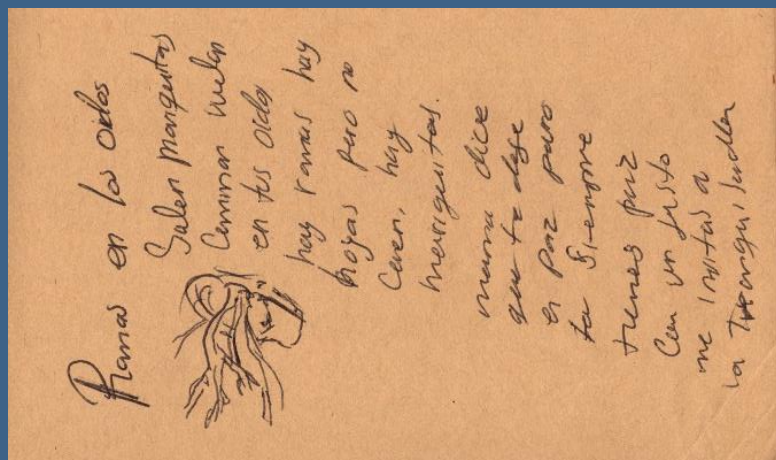 Ramas en los oidos
Salen manguitas
Caminan vuelan
en tus oidos
hay ramas hay
hoyas pero no
Caven, hay
mariguitas.
mama dice
que te deje
en paz pero
tu siempre
tienes paz
Con un justo
me invitas a
la tranquisudlla